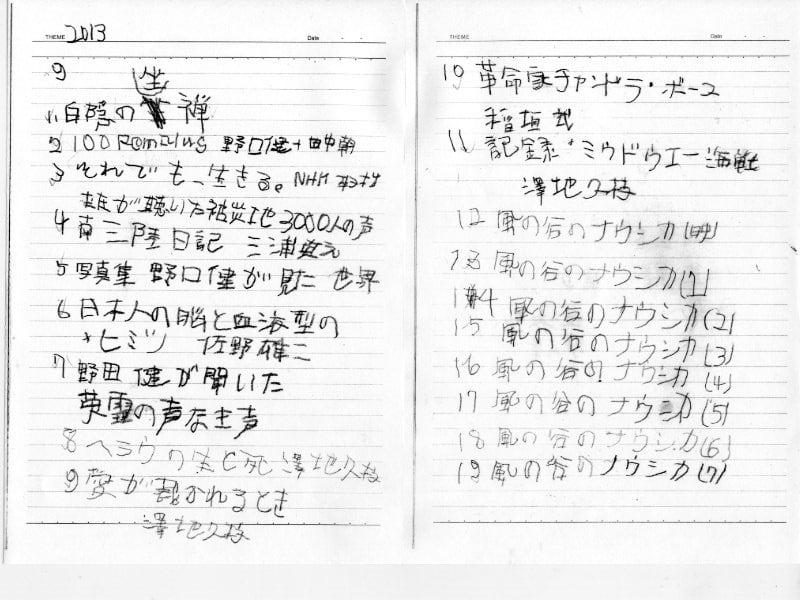 THEME 2013 Date
9
1. 白隠の坐禅
2 100 Romulus 野口健+田中朝
3 それでも、生きる。NHK
が聴いた被災地3000人の声
4 南三陸日記 三浦英之
5 写真集 野口健が見た世界
6 日本人の脳と血液型の
ヒミツ 佐野雄二
7 野田健が聞いた
英霊の声なき声
8 ヘラウの生と死 澤地久枝
9 愛が裁かれるとき
澤地久枝
THEME Date
10 革命家チャンドラ・ボース
稲垣武
11 記録・ミウドウエー海戦
澤地久枝
12 風の谷のナウシカ(映)
13 風の谷のナウシカ(1)
14 風の谷のナウシカ(2)
15 風の谷のナウシカ(3)
16 風の谷のナウシカ(4)
17 風の谷のナウシカ(5)
18 風の谷のナウシカ(6)
19 風の谷のナウシカ(7)